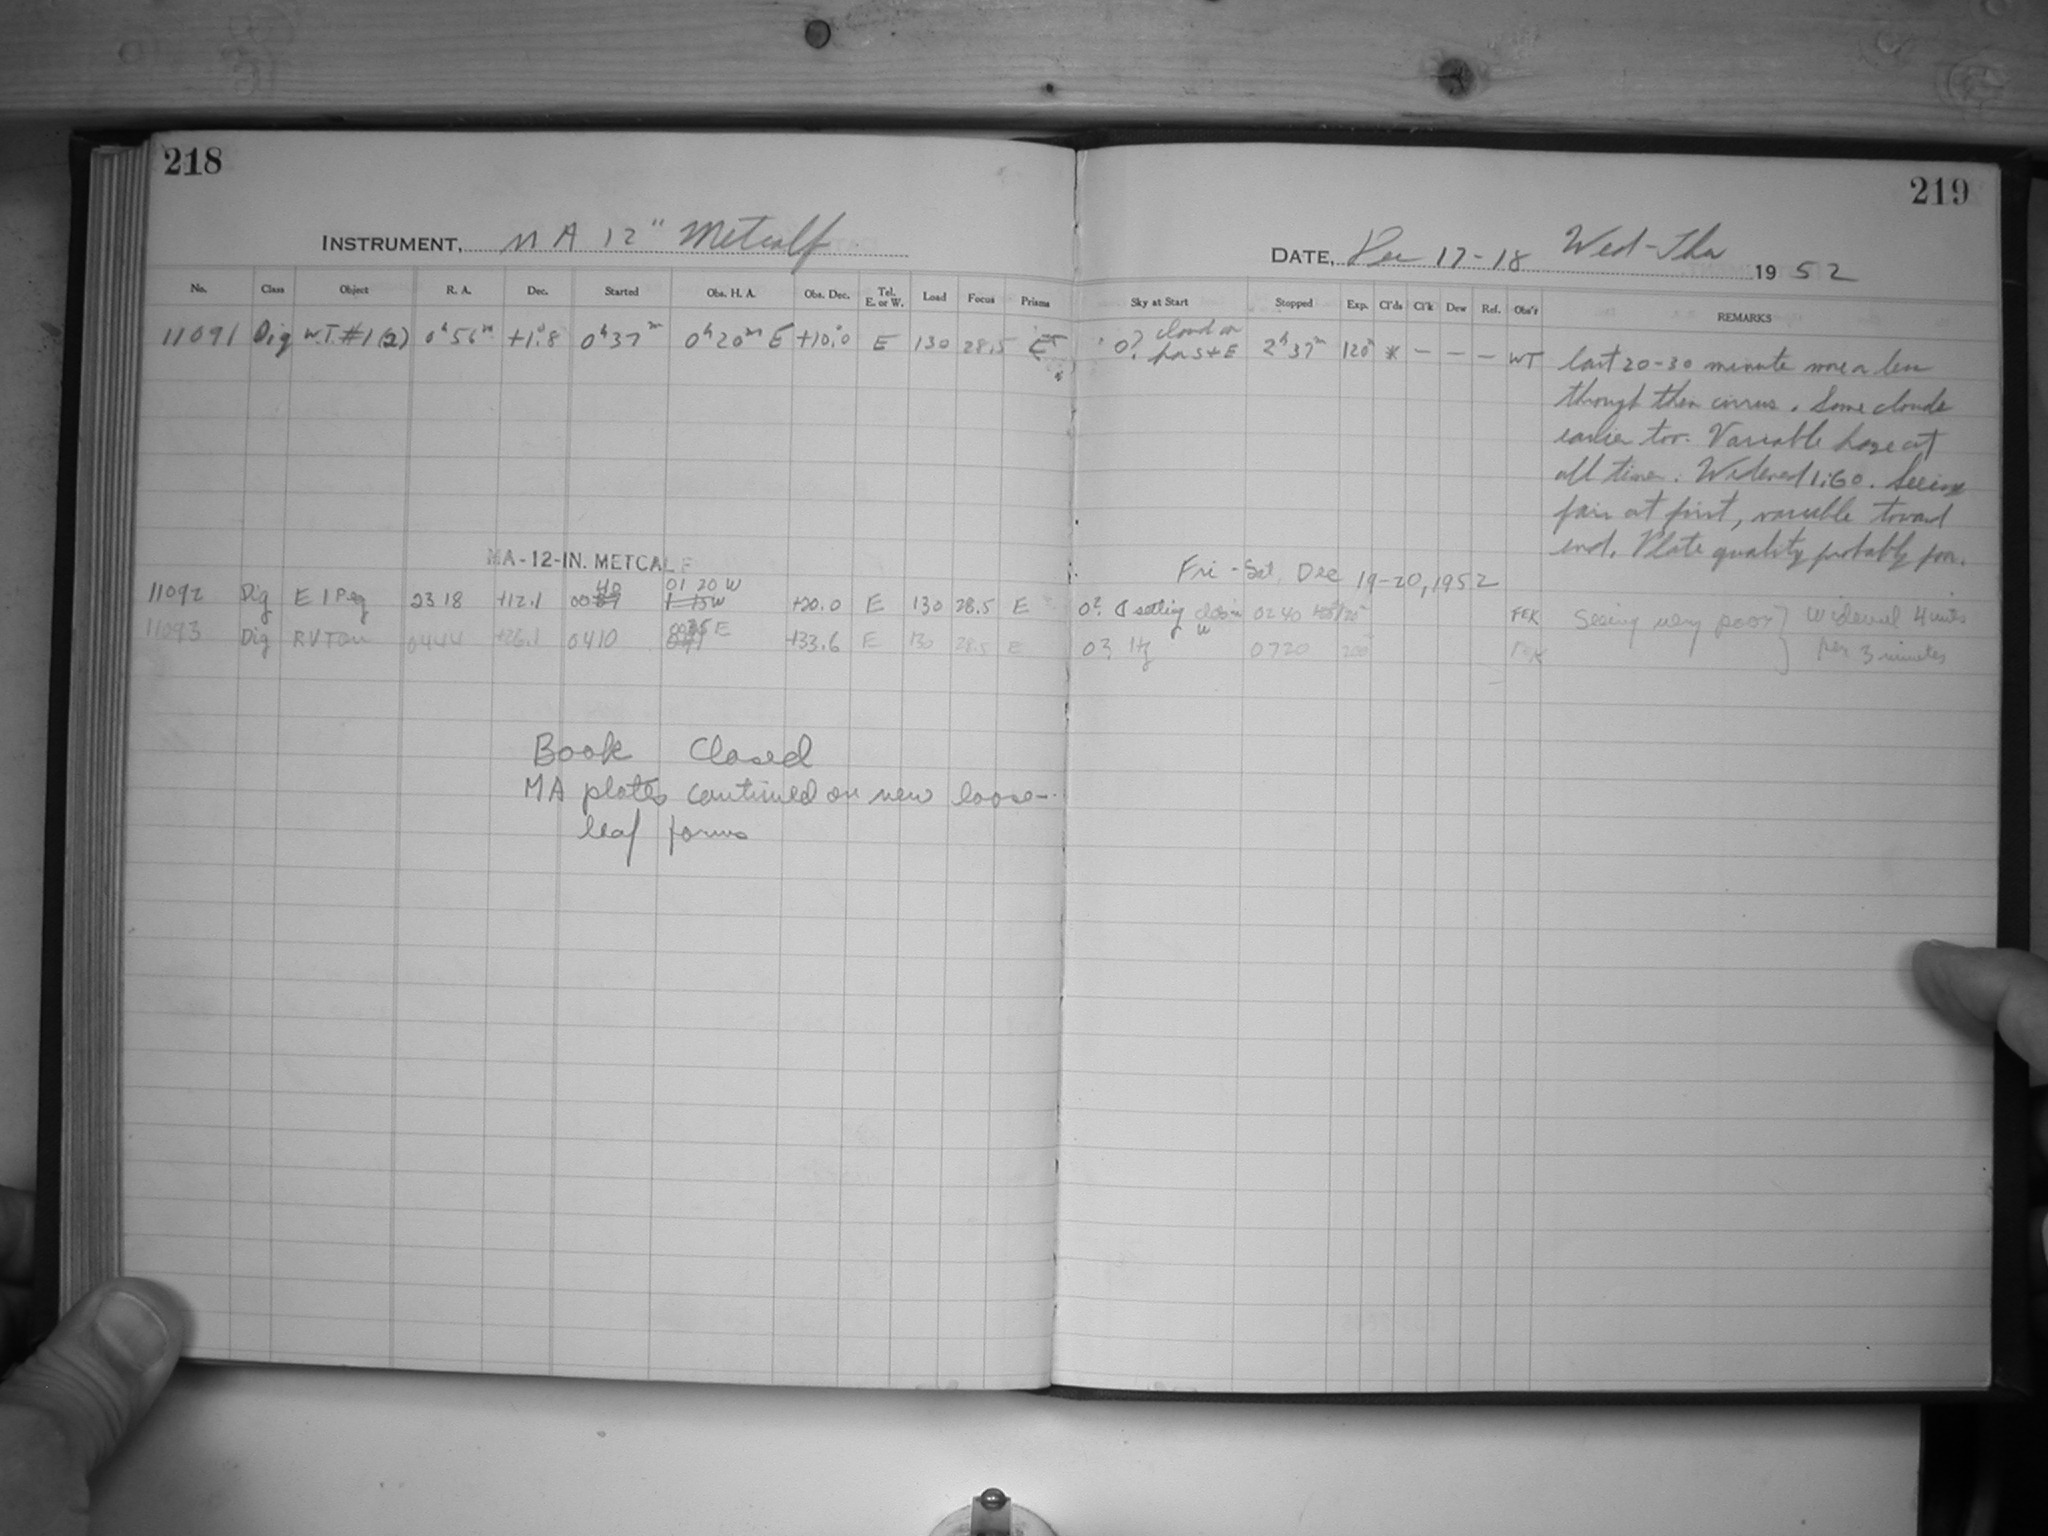 218
219
INSTRUMENT, MA 12" Metcalf
DATE, Dec 17-18 Wed-Thu 1952
No. Class Object R. A. Dec. Started Obs. H. A. Obs. Dec. Tel. E. or W. Load Focus Prisms
Sky at Start Stopped Exp. Cl'ds Cl'k Dew Ref. Obs'r REMARKS
11091 Dig W.T. #1(2) 0h56m +1°.8 0h37m 0h20m E +10°.0 E 130 28.5 E
0? cloud in far S+E 2h37m 120m * — — — WT
last 20-30 minute more or less
through thin cirrus. Some clouds
earlier too. Variable haze at
all times. Widened 1:60. Seeing
fair at first, variable toward
end. Plate quality probably poor.
MA-12-IN. METCALF
Fri - Sat, Dec 19-20, 1952
11092 Dig EI Peg 2318 +12.1 0040 01 20 W +20.0 E 130 28.5 E
0? setting in W 0240 120 FEK Seeing very poor } Widened 4 units
11093 Dig RV Tau 0444 +26.1 0410 0035 E +33.6 E 130 28.5 E
0? 0720 FEK per 3 minutes
Book Closed
MA plates continued on new loose-
leaf forms